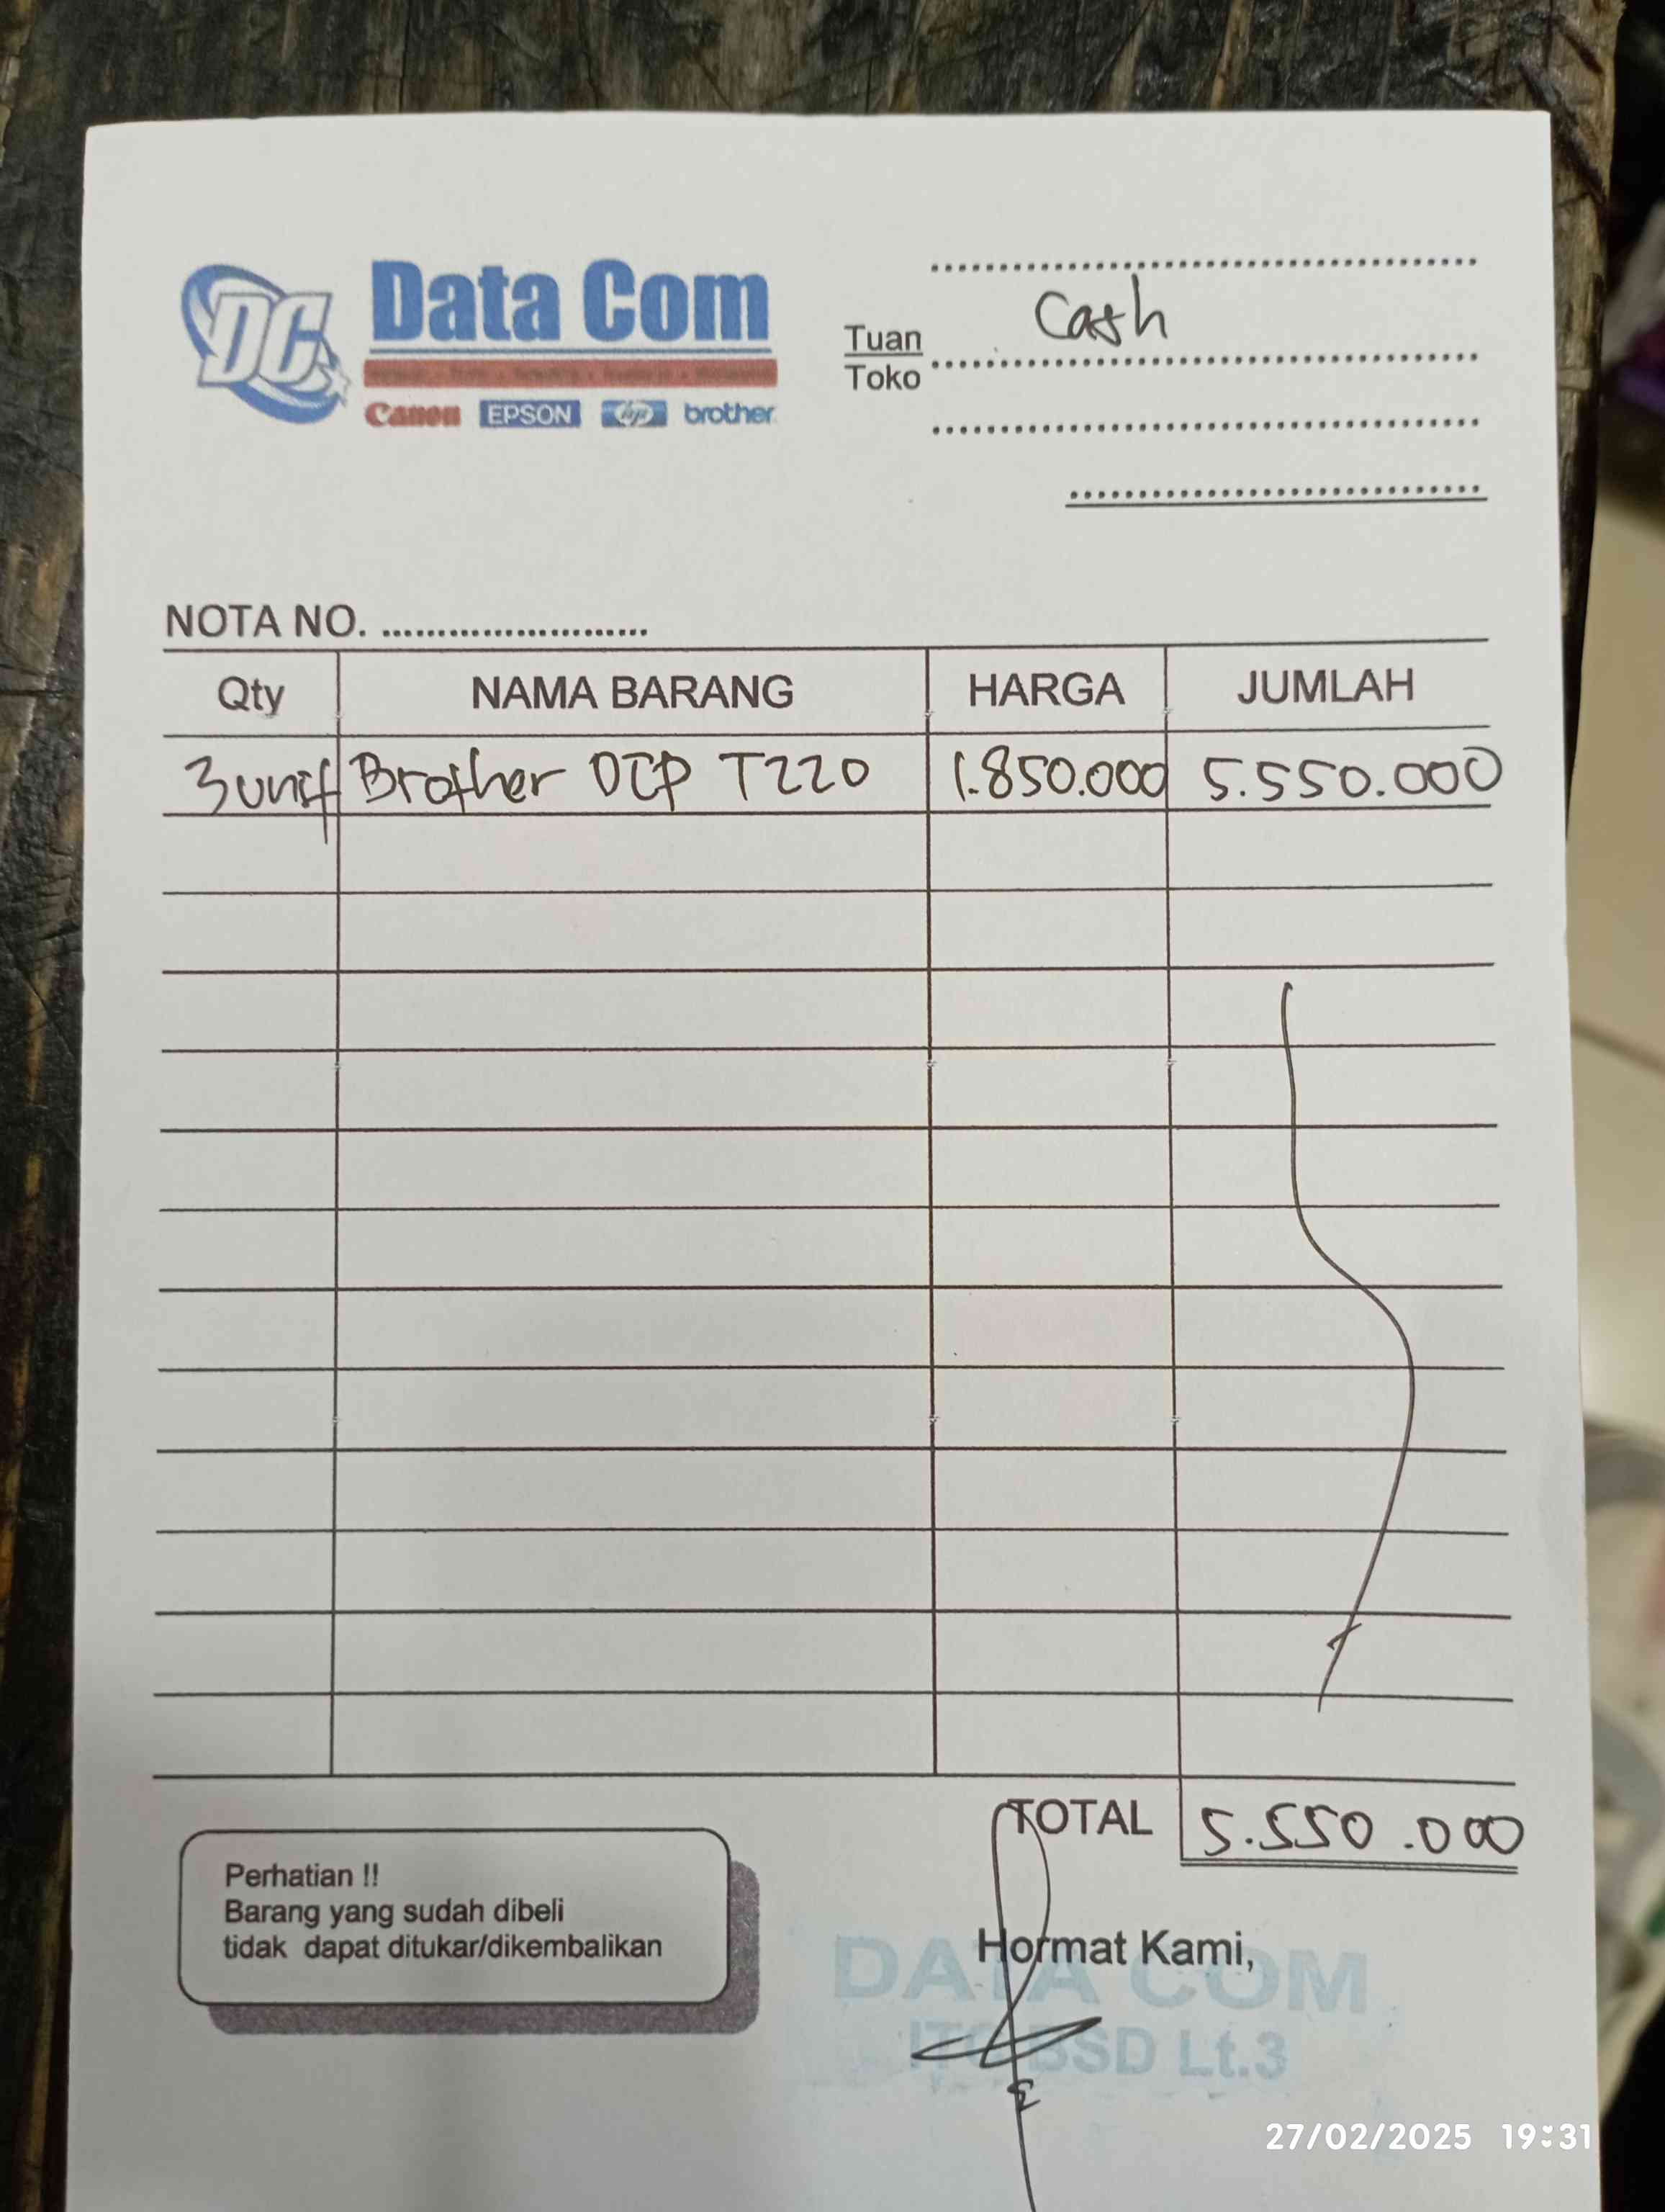 DC
Data Com
Canon EPSON hp brother
Cash
Tuan
Toko
NOTA NO. ........................
Qty NAMA BARANG HARGA JUMLAH
3 unit Brother DCP T220 1.850.000 5.550.000
TOTAL 5.550.000
Perhatian !!
Barang yang sudah dibeli
tidak dapat ditukar/dikembalikan
Hormat Kami,
DATA COM
ITC BSD Lt.3
27/02/2025 19:31